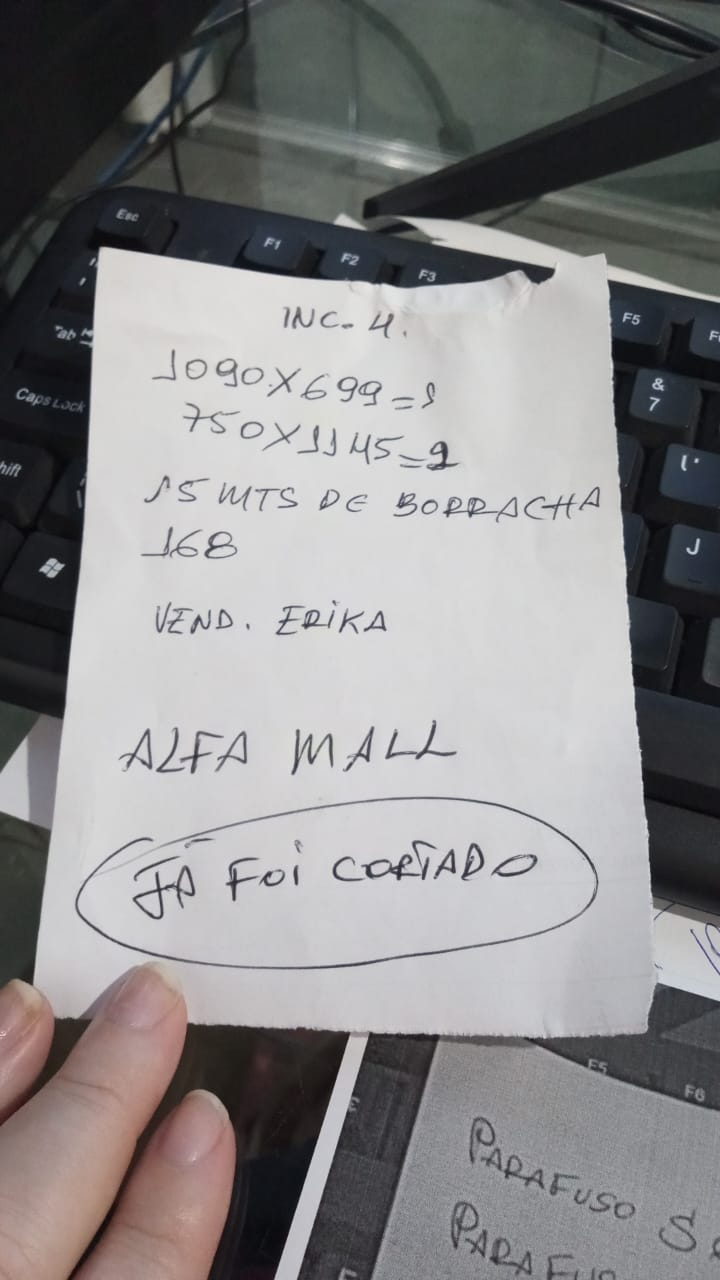 Esc
F1
F2
F3
F5
Tab
Caps Lock
&
7
J
INC. 4.
1090X699=1
750X1145=2
15 MTS DE BORRACHA
168
VEND. ERIKA
ALFA MALL
JÁ FOI CORTADO
F5
F6
PARAFUSO